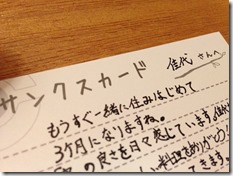 サンクスカード 佳代さんへ
もうすぐ一緒に住みはじめて
3ヶ月になりますね。
の良さを日々感じています。
料理をありがとう!
きます。